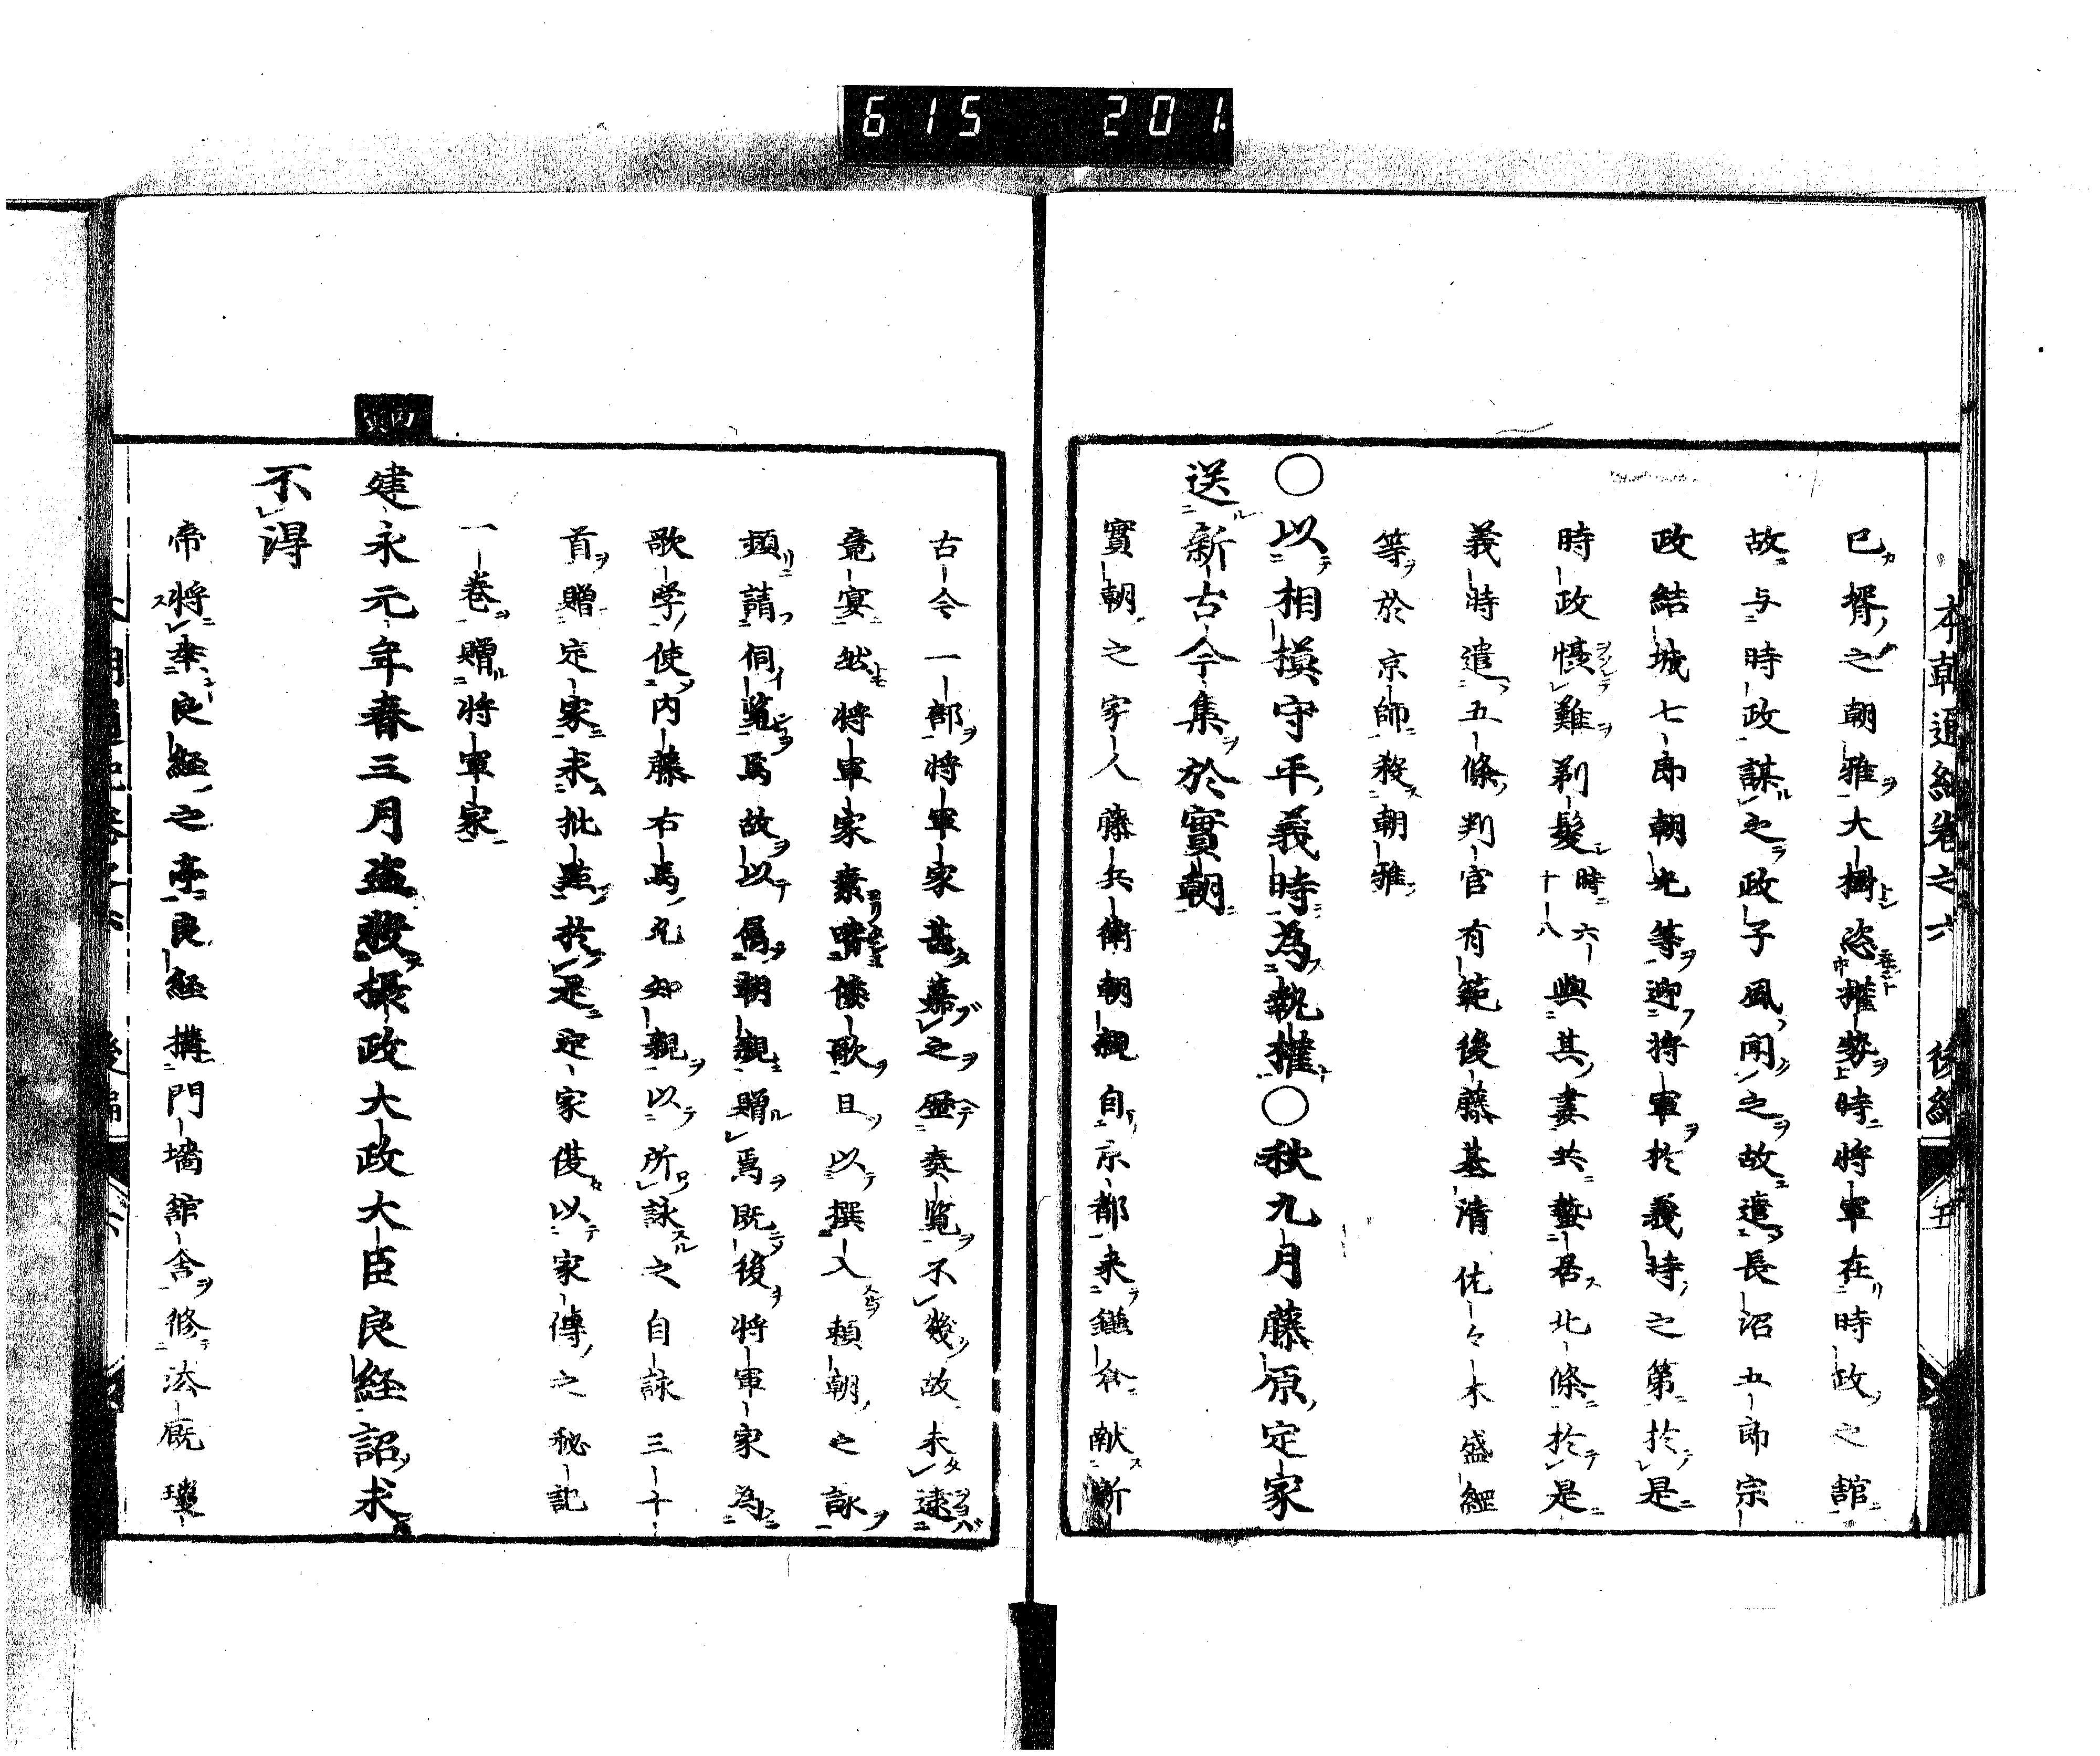 615 201.
本朝通紀卷之六 後編 五
已壻之朝雅大樹恣權勢時將軍在時政之館
故与時政謀之政子風聞之故遣長沼五郎宗
政結城七郎朝光等迎將軍於義時之第於是
時政慑難剃髮時六十八與其妻共蟄居北條於是
義時遣五條判官有範後藤基清佐々木盛經
等於京師殺朝雅
○以相摸守平義時為執權○秋九月藤原定家
送新古今集於實朝
實朝之家人藤兵衛朝親自京都来鎌倉献新
古今一部將軍家甚慕之歴奏覧不幾故未逮
竟宴然將軍家素嗜倭歌且以撰入頼朝之詠
頻請伺覧焉故以属朝親贈焉既後將軍家為
歌学使内藤右馬允知親以所詠之自詠三十
首贈定家求批點於是定家復以家傳之秘記
一卷贈將軍家
四
建永元年春三月盗殺攝政大政大臣良経詔求
不得
帝將幸良経之亭良経搆門墻舘舎修法厩